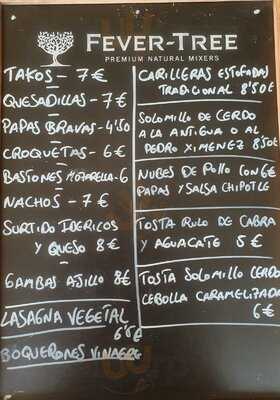 FEVER-TREE
PREMIUM NATURAL MIXERS
TAKOS - 7 €
QUESADILLAS - 7 €
PAPAS BRAVAS - 4'50
CROQUETAS - 6 €
BASTONES MOZARELLA - 6
NACHOS - 7 €
SURTIDO IBERICOS
Y QUESO 8 €
GAMBAS AJILLO 8€
LASAGNA VEGETAL
6'5€
BOQUERONES VINAGRE
CARILLERAS ESTOFADAS
TRADICIONAL 8'50€
SOLOMILLO DE CERDO
A LA ANTIGUA O AL
PEDRO XIMENEZ 8'50€
NUBES DE POLLO CON 6€
PAPAS Y SALSA CHIPOTLE
TOSTA RULO DE CABRA
Y AGUACATE 5 €
TOSTA SOLOMILLO CERDO
CEBOLLA CARAMELIZADA
6 €